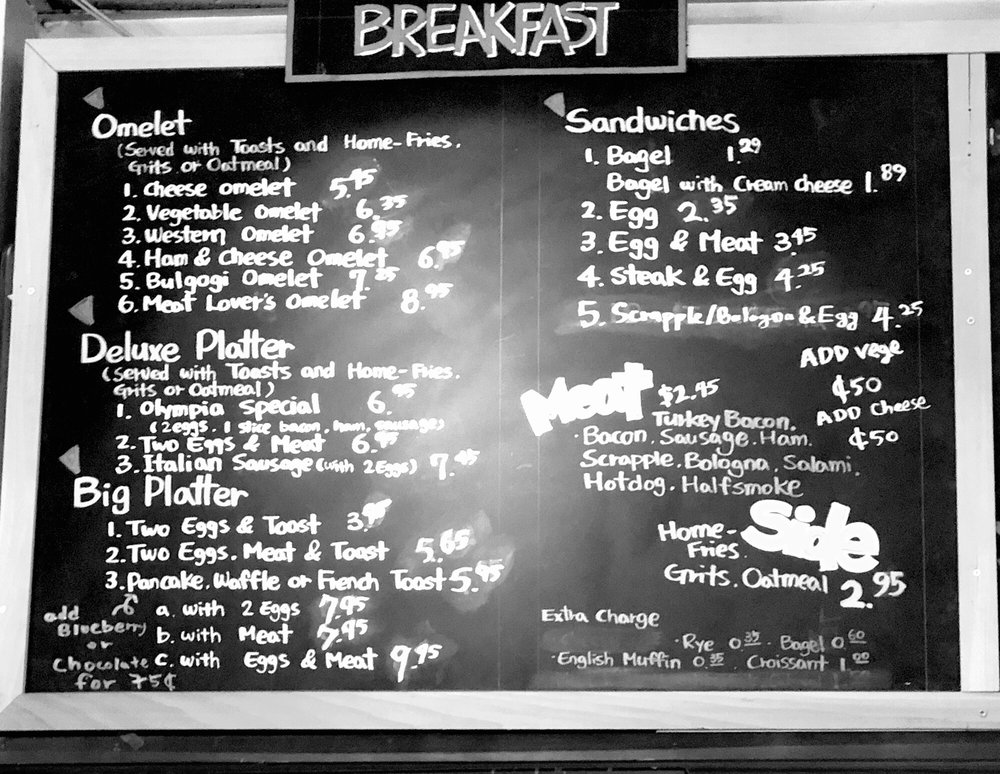 BREAKFAST
Omelet
(Served with Toasts and Home-Fries.
Grits or Oatmeal)
1. Cheese omelet 5.45
2. Vegetable Omelet 6.35
3. Western Omelet 6.95
4. Ham & Cheese Omelet 6.95
5. Bulgogi Omelet 7.35
6. Meat Lover's Omelet 8.95
Deluxe Platter
(Served with Toasts and Home-Fries.
Grits or Oatmeal)
1. Olympia Special 6.95
(2 eggs. 1 slice bacon, ham, sausage)
2. Two Eggs & Meat 6.45
3. Italian Sausage (with 2 Eggs) 7.45
Big Platter
1. Two Eggs & Toast 3.95
2. Two Eggs. Meat & Toast 5.65
3. Pancake. Waffle or French Toast 5.95
a. with 2 Eggs 7.95
b. with Meat 7.95
c. with Eggs & Meat 9.95
add
Blueberry
or
Chocolate
for 75¢
Sandwiches
1. Bagel 1.29
Bagel with Cream cheese 1.89
2. Egg 2.35
3. Egg & Meat 3.45
4. Steak & Egg 4.25
5. Scrapple/Bologna & Egg 4.25
ADD Vege
¢50
ADD Cheese
¢50
Meat $2.95
Turkey Bacon.
·Bacon. Sausage. Ham.
Scrapple. Bologna. Salami.
Hotdog. Halfsmoke
Side
Home-
Fries.
Grits. Oatmeal 2.95
Extra Charge
·Rye 0.35 · Bagel 0.60
·English Muffin 0.35 . Croissant 1.00